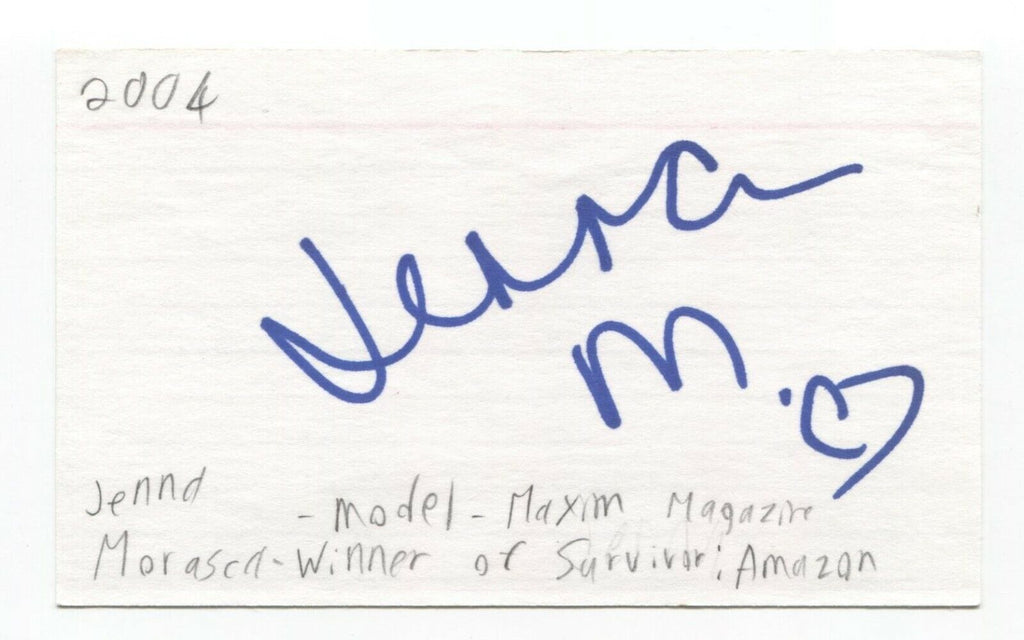 2004
Jenna
M. ♡
Jenna - Model - Maxim Magazine
Morasca - Winner of Survivor: Amazon